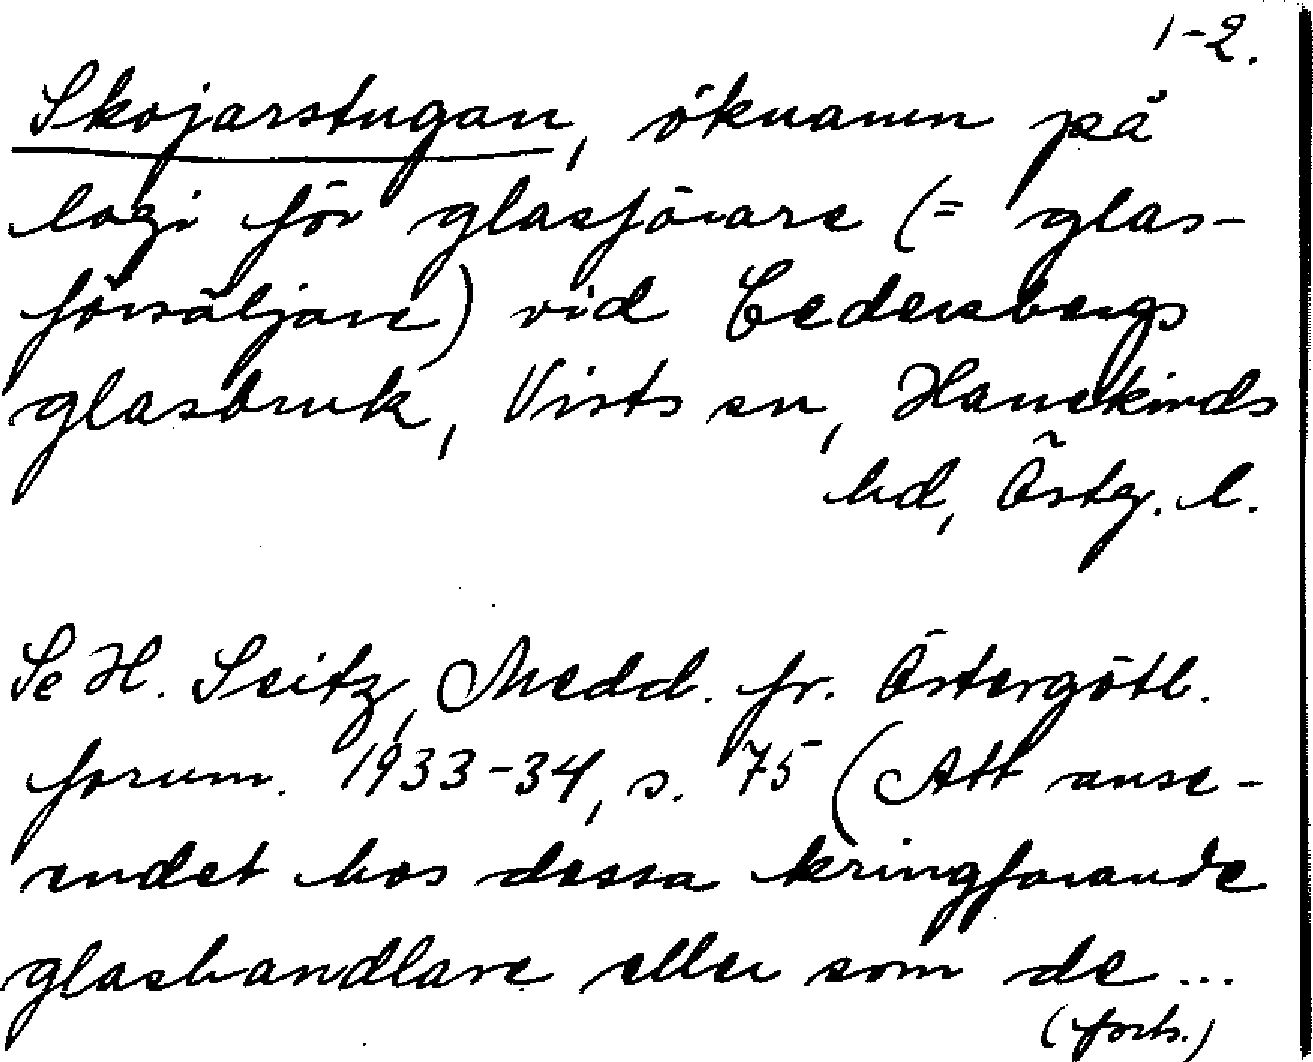 1-2.
Skojarstugan, öknamn på
logi för glasförare (= glas-
försäljare) vid Cedersbergs
glasbruk, Vists sn, Hanekinds
hd, Östg. l.
Se H. Seitz, Medd. fr. Östergötl.
fornm. 1933-34, s. 75 (Att anse-
endet hos dessa kringfarande
glashandlare eller som de ...
(forts.)